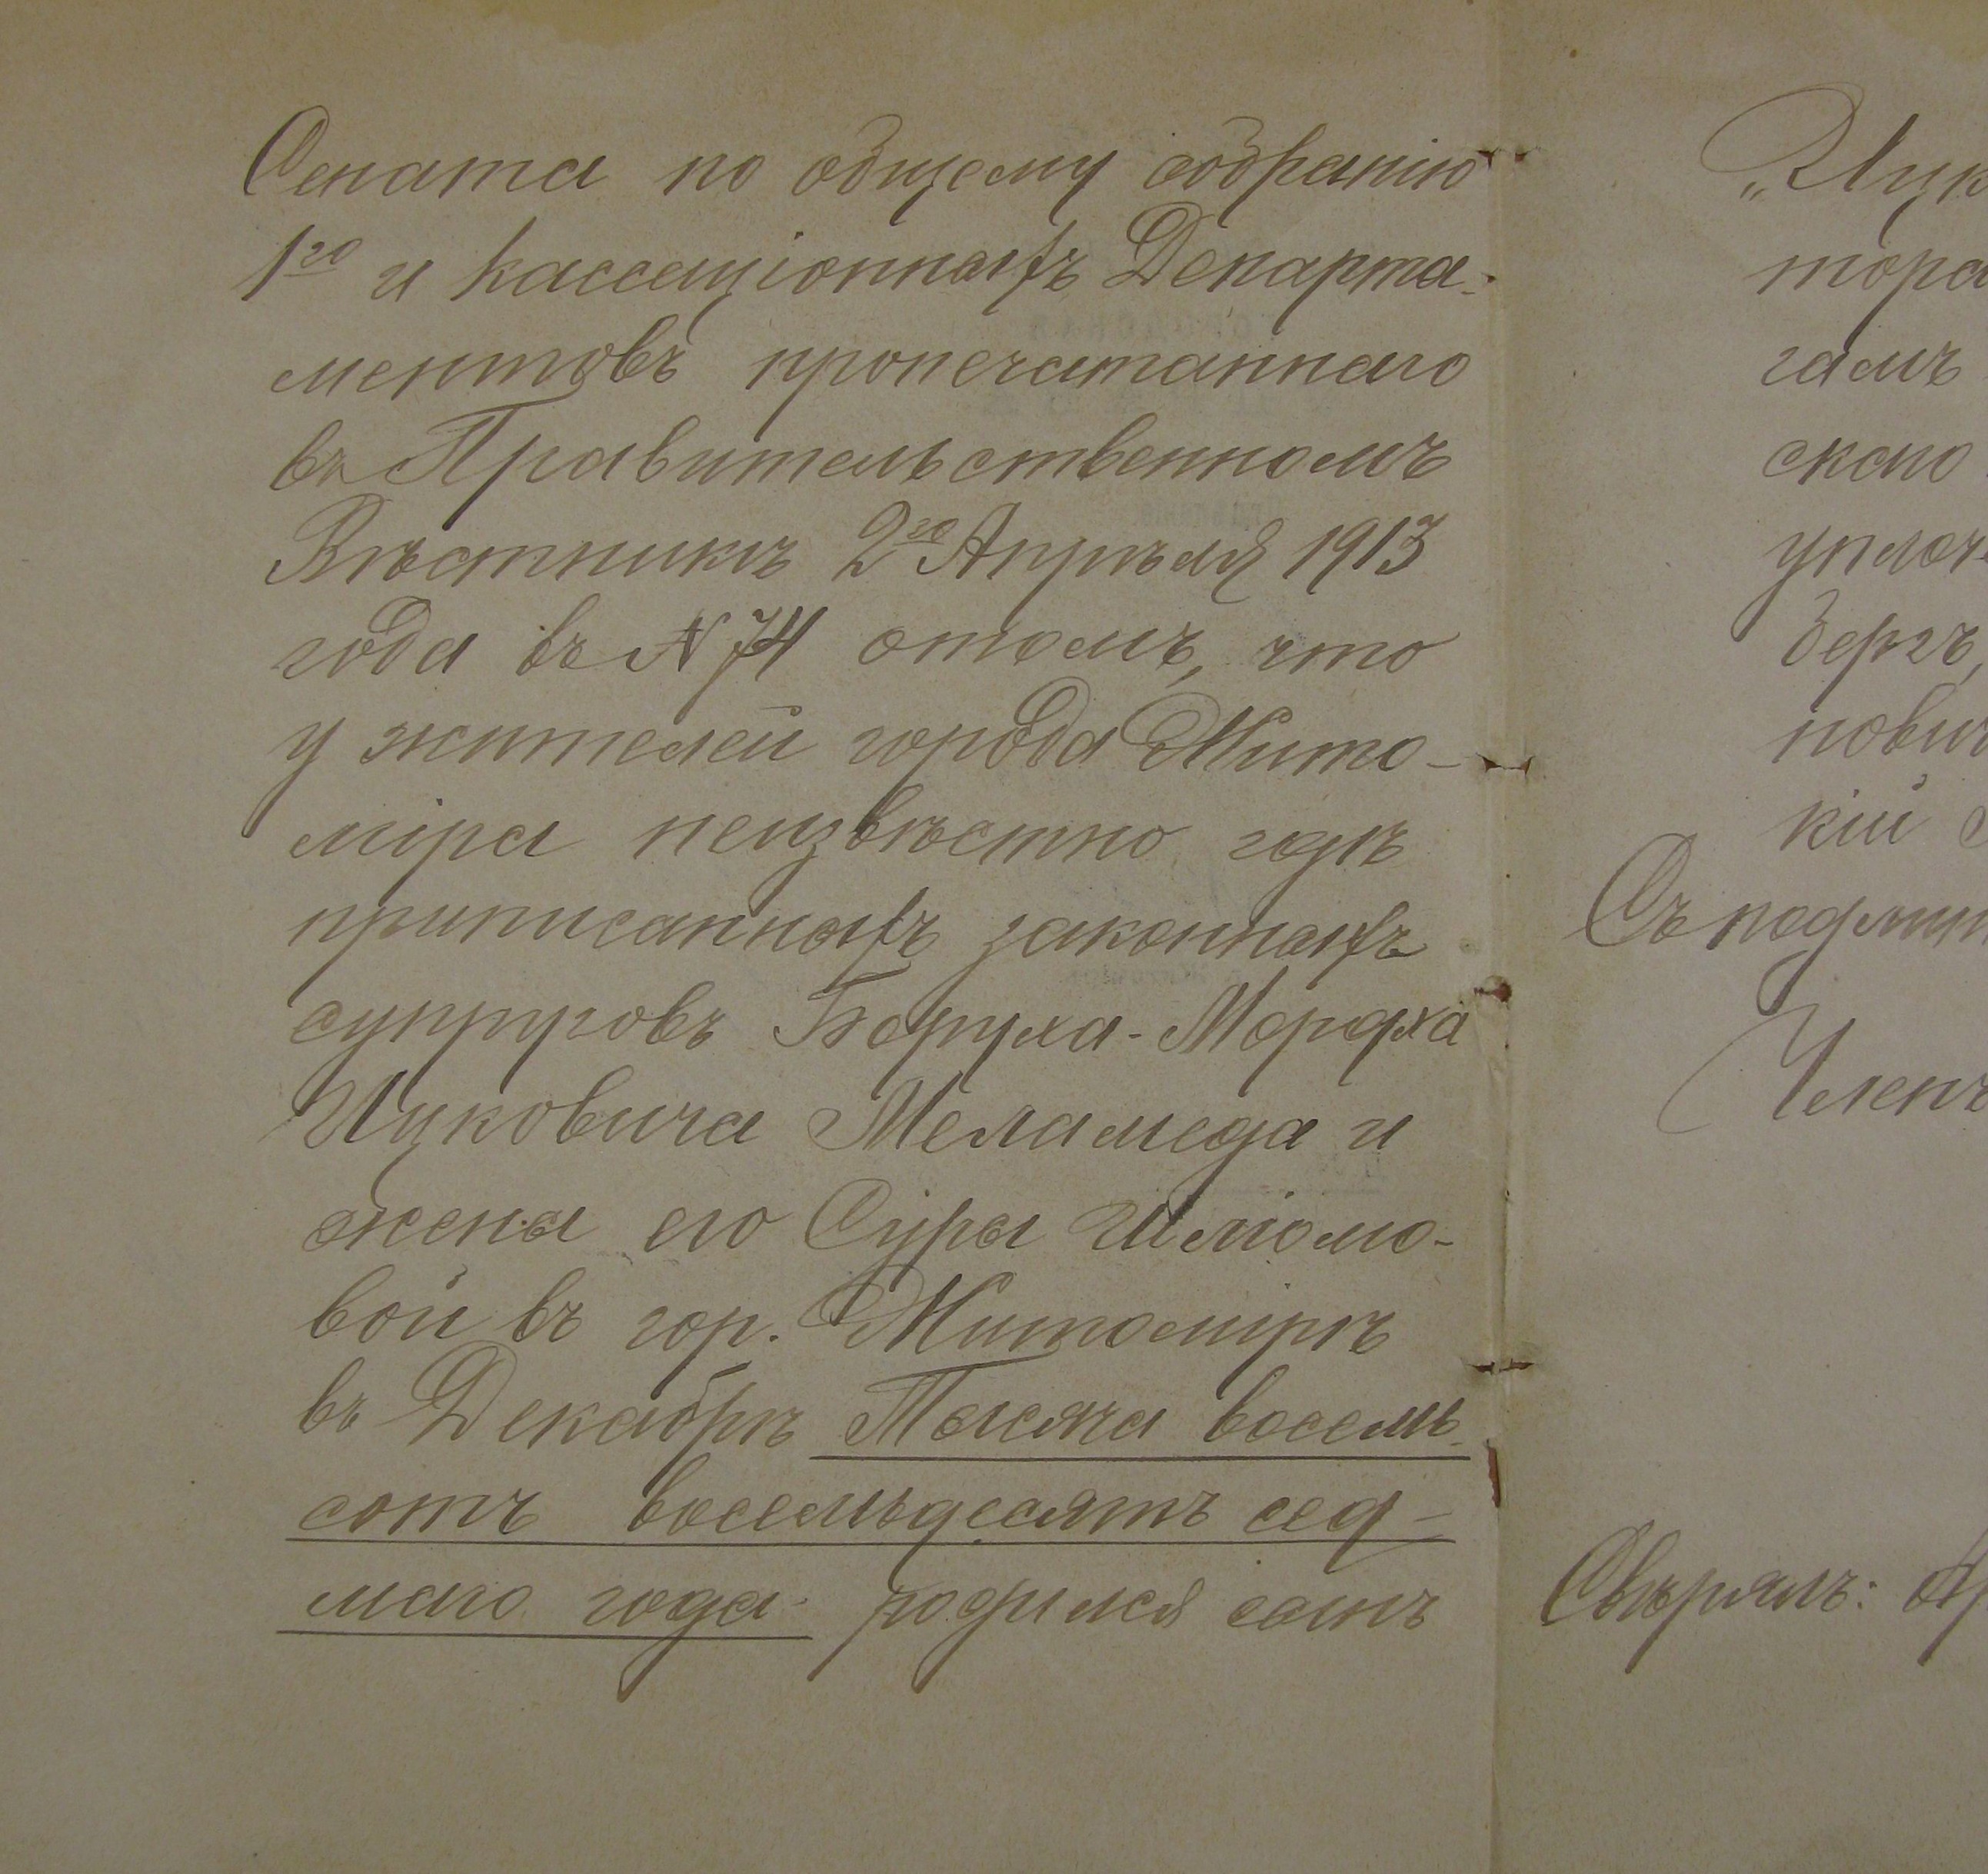 Сената по общему собранію
1го и кассаціонныхъ Департа-
ментовъ пропечатаннаго
въ Правительственномъ
Вѣстникѣ 2го Апрѣля 1913
года въ N 74 отомъ, что
у жителей города Жито-
міра неизвѣстно гдѣ
приписанныхъ законныхъ
супруговъ Боруха-Мордха
Ицковича Меламеда и
жена его Суры Шліомо-
вой въ гор. Житомірѣ
въ Декабрѣ Тысяча восемь-
сотъ восемьдесятъ сед-
маго года родился сынъ
„Ицк
тора
гамъ
скаго
уплоч
бергъ,
нович
кій
Съ подлин
Членъ
Свѣрялъ: